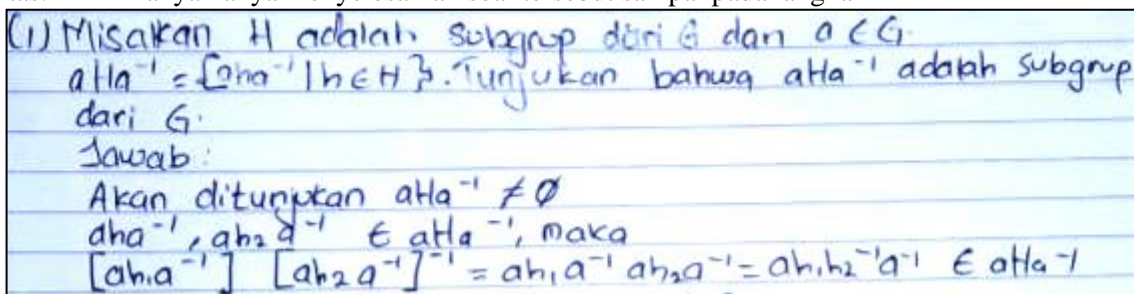 (1) Misalkan H adalah subgrup dari G dan a ∈ G.
aHa⁻¹ = {aha⁻¹ | h ∈ H}. Tunjukan bahwa aHa⁻¹ adalah subgrup
dari G.
Jawab :
Akan ditunjukan aHa⁻¹ ≠ ∅
aha⁻¹, ah₂a⁻¹ ∈ aHa⁻¹, maka
[ah₁a⁻¹] [ah₂a⁻¹]⁻¹ = ah₁a⁻¹ ah₂a⁻¹ = ah₁h₂⁻¹a⁻¹ ∈ aHa⁻¹